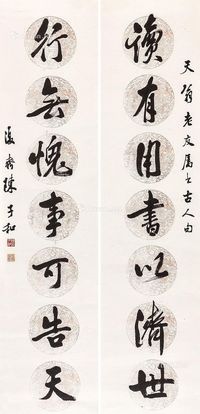 天翁老友屬書古人句
讀有用書以濟世
行無愧事可告天
陳子和